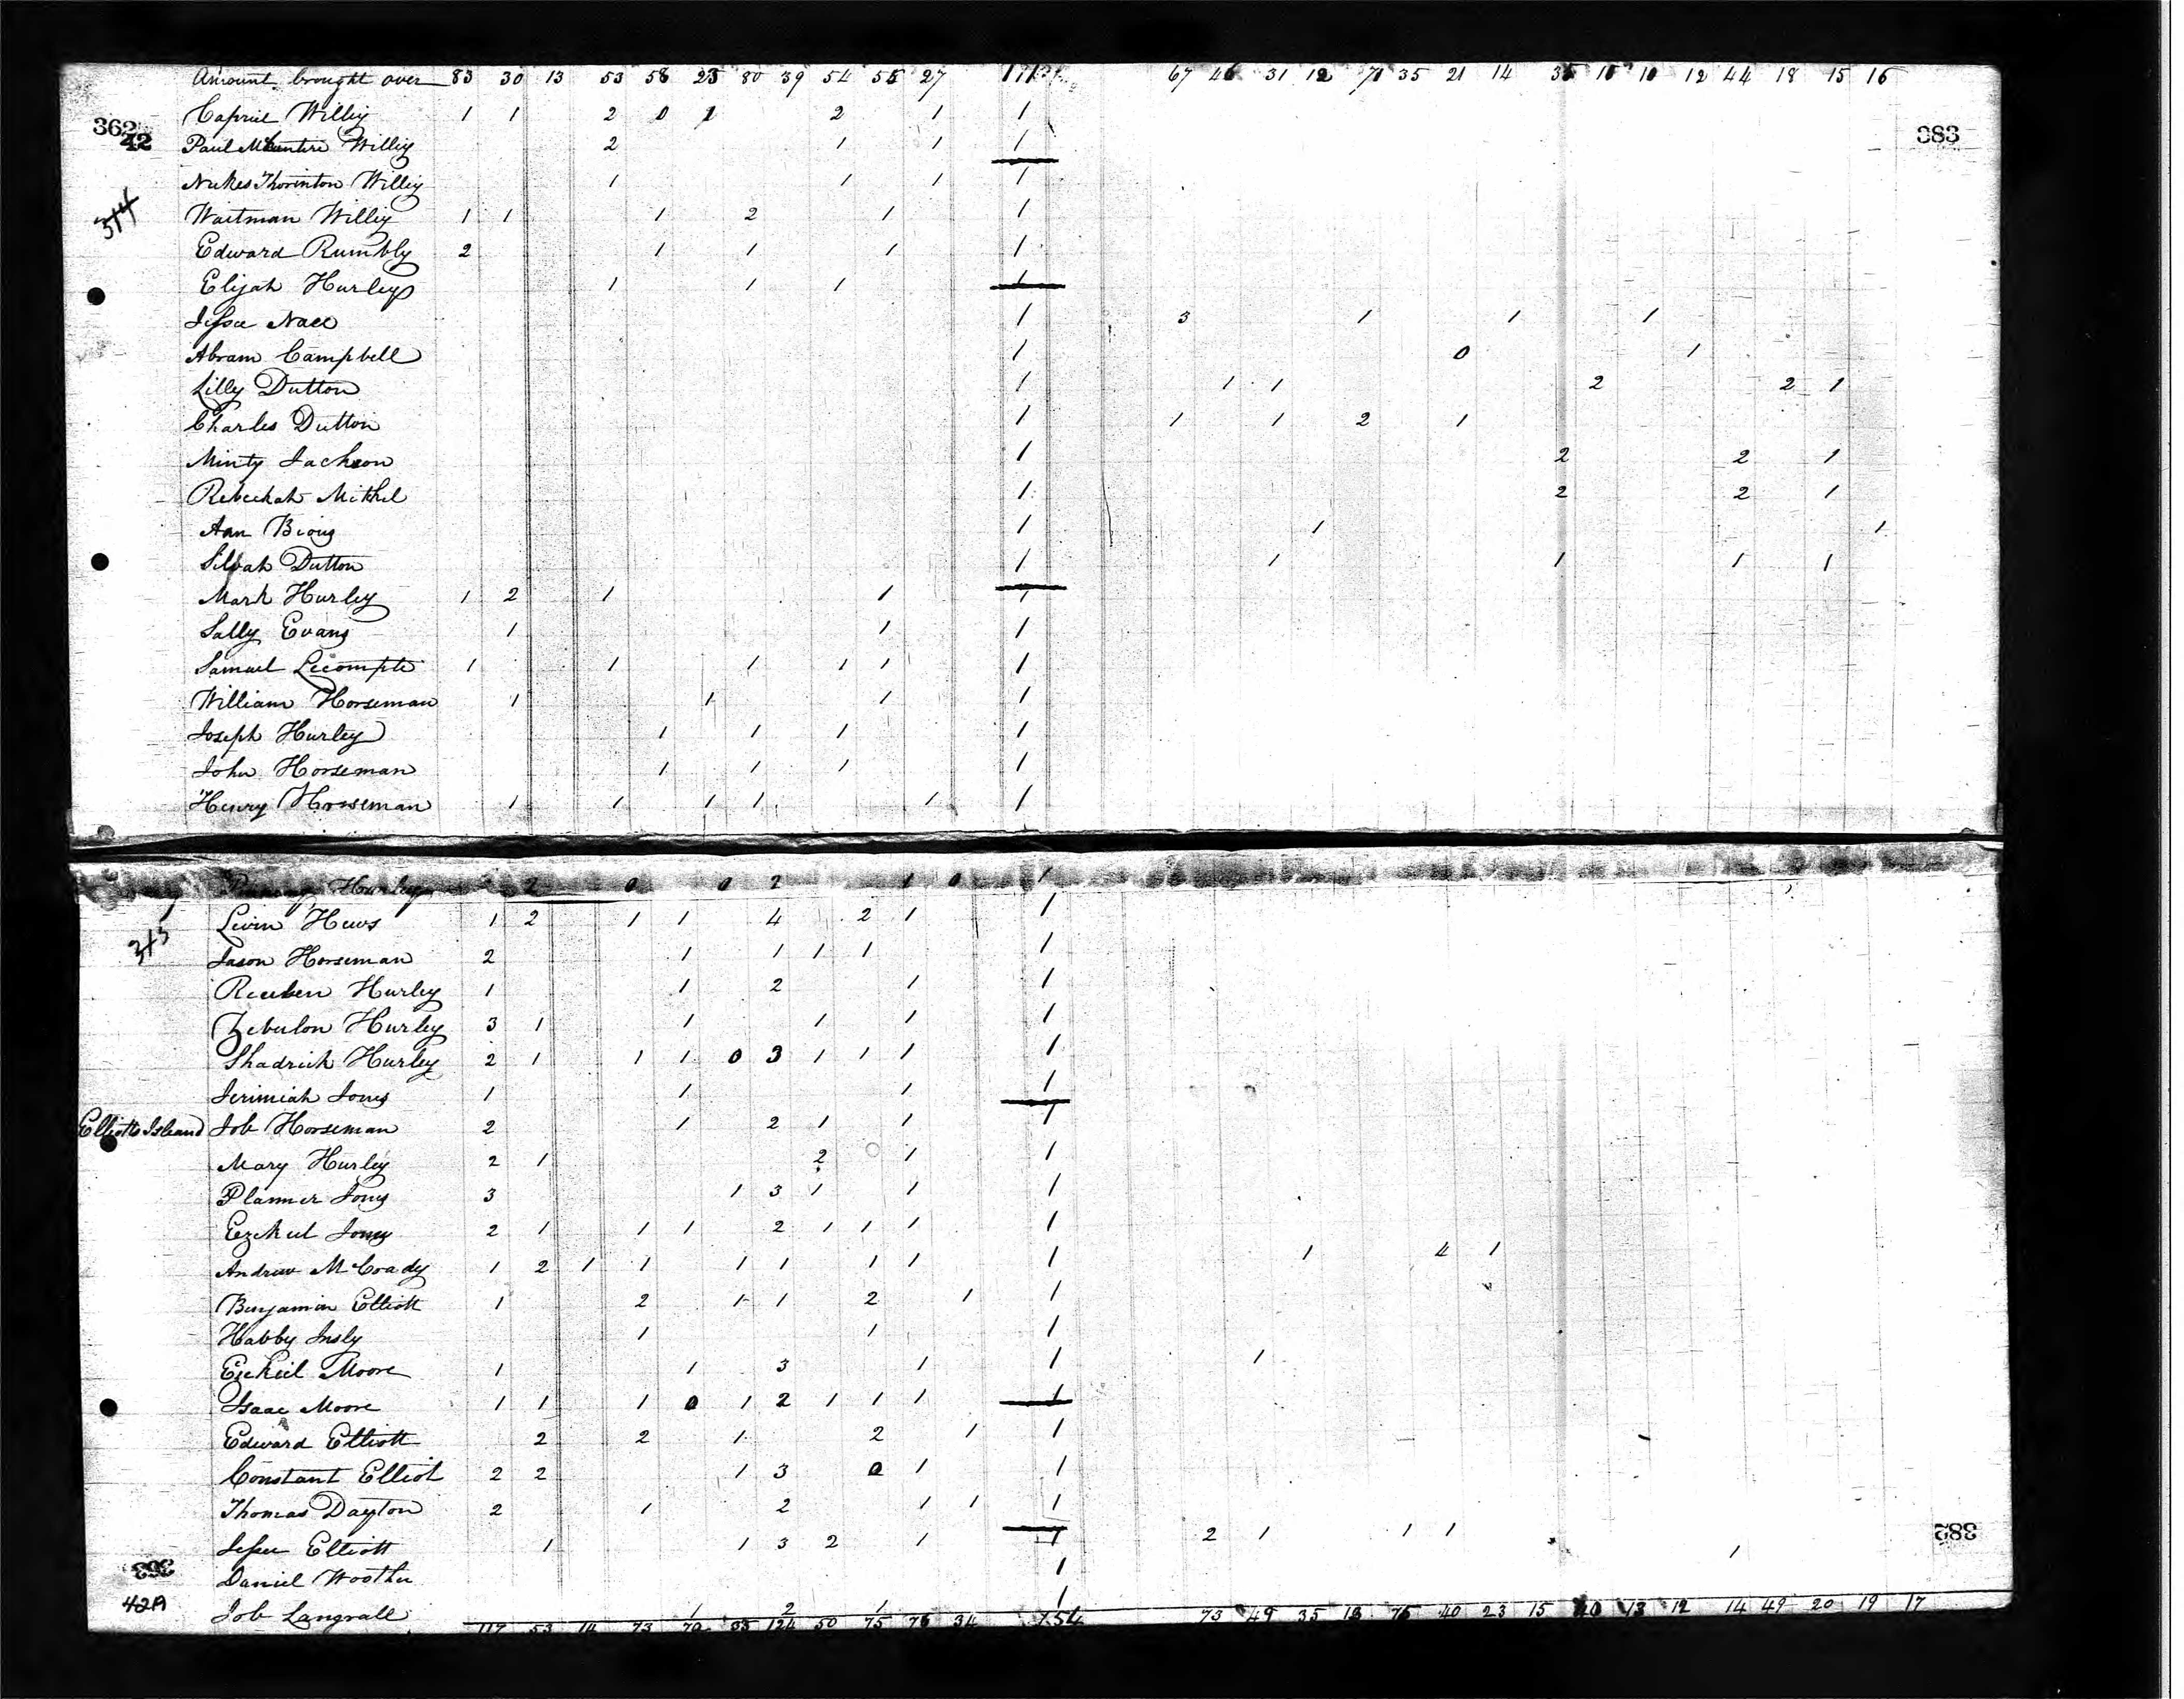 Amount brought over 83 30 13 53 58 23 80 39 54 55 27 67 46 31 12 71 35 21 14 10 12 44 18 15 16
362 Caprie Willey 1 1 2 0 1 2 1 1
42 Paul Willey 2 1 1 1 383
Thorinton Willey 1 1 1 1
314 Waitman Willey 1 1 1 2 1 1
Edward Rumbly 2 1 1 1 1
Elijah Hurley 1 1 1 1
Jesse Nace 1 3 1 1 1
Abram Campbell 1 0 1
Lilly Dutton 1 1 1 2 2 1
Charles Dutton 1 1 1 2 1
Minty Jackson 1 2 2 1
Rebeckah Mithel 1 2 2 1
Ann 1 1 1
Silvah Dutton 1 1 1 1 1
Mark Hurley 1 2 1 1 1
Sally Evans 1 1 1
Samuel Lecompte 1 1 1 1 1 1
William Horseman 1 1 1 1
Joseph Hurley 1 1 1 1
John Horseman 1 1 1 1
Henry Horseman 1 1 1 1 1 1
Hurley 2 0 0 2 1 0 1
Levin Hews 1 2 1 1 4 2 1 1
315 Jason Horseman 2 1 1 1 1 1
Reuben Hurley 1 1 2 1 1
Zebulon Hurley 3 1 1 1 1 1
Shadrick Hurley 2 1 1 1 0 3 1 1 1 1
Jerimiah Jones 1 1 1 1
Elliotts Island Job Horseman 2 1 2 1 1 1
Mary Hurley 2 1 2 1 1
Planner Jones 3 1 3 1 1 1
Ezekiel Jones 2 1 1 1 2 1 1 1 1
Andrew McCoady 1 2 1 1 1 1 1 1 1 1 4 1
Benjamin Elliott 1 2 1 1 2 1 1
Habby Insly 1 1 1
Ezekiel Moore 1 1 3 1 1 1
Isaac Moore 1 1 1 0 1 2 1 1 1 1
Edward Elliott 2 2 1 2 1 1
Constant Elliot 2 2 1 3 0 1 1
Thomas Dayton 2 1 2 1 1 1
Jesse Elliott 1 1 3 2 1 1 2 1 1 1 382
363 Daniel 1 1
42A Job Langrall 1 2 1 1
117 53 14 73 70 33 124 50 75 76 34 154 73 49 35 13 75 40 23 15 40 13 12 14 49 20 19 17